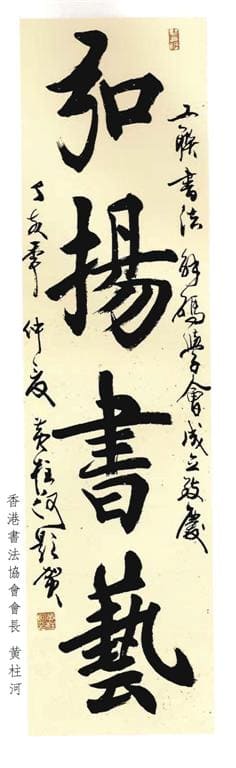 工聯書法解碼學會成立致慶
弘揚書藝
丁亥季仲夏黃柱河題賀
香港書法協會會長 黃柱河